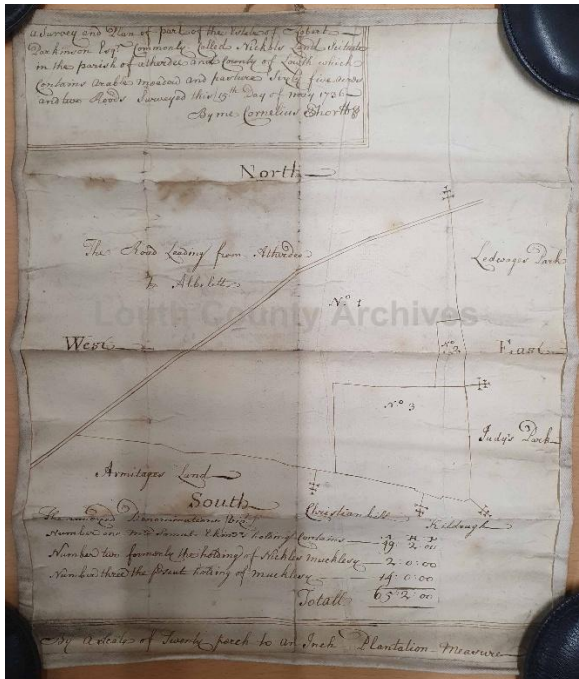 A Survey and Plan of part of the Estate of Robert
Parkinson Esqr. Commonly Called Nickles Land Scituate
in the parish of Atherdee and County of Louth which
Contains arable meadow and pasture Sixty five acres
and two Roods Surveyed this 15th Day of may 1736
By me Cornelius Short
North
The Road Leading from Atherdee
To
Ledwages Park
No. 1
Louth County Archives
West
No. 2
East
No. 3
Judy's Park
Armitages Land
South
Christianhill
Kildough
The Denominations
A R P
Number one Mr holding Contains 49 2 00
Number two formerly the holding of Nickles mucklesy 2 : 0 : 00
Number three the psent holding of mucklesy 14 : 0 : 00
Totall 65 : 2 : 00
By a Scale of Twenty perch to an Inch Plantation Measure